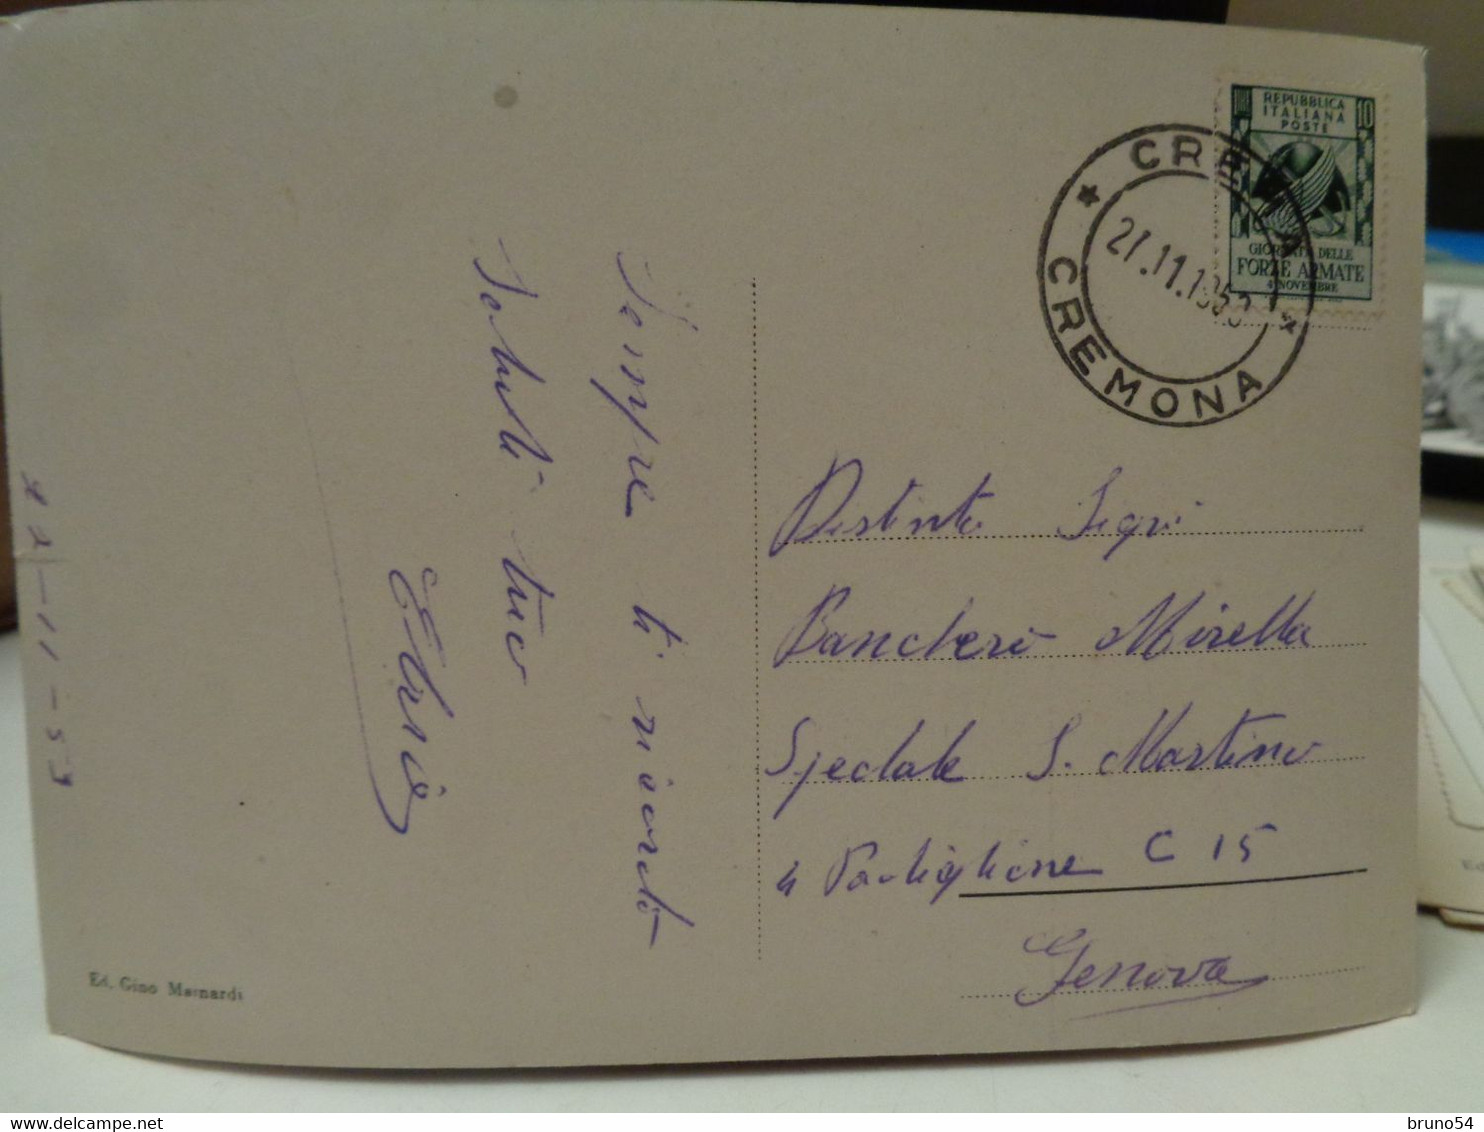 REPUBBLICA
ITALIANA
POSTE
10
GIORNATA DELLE
FORZE ARMATE
4 NOVEMBRE
CREMA
21.11.1953
CREMONA
Sempre ti ricordo
Saluti tuo
22-11-53
Distinta Sigri
Banchero Mirella
Spedale S. Martino
4 Padiglione C 15
Genova
Ed. Gino Mainardi
bruno54